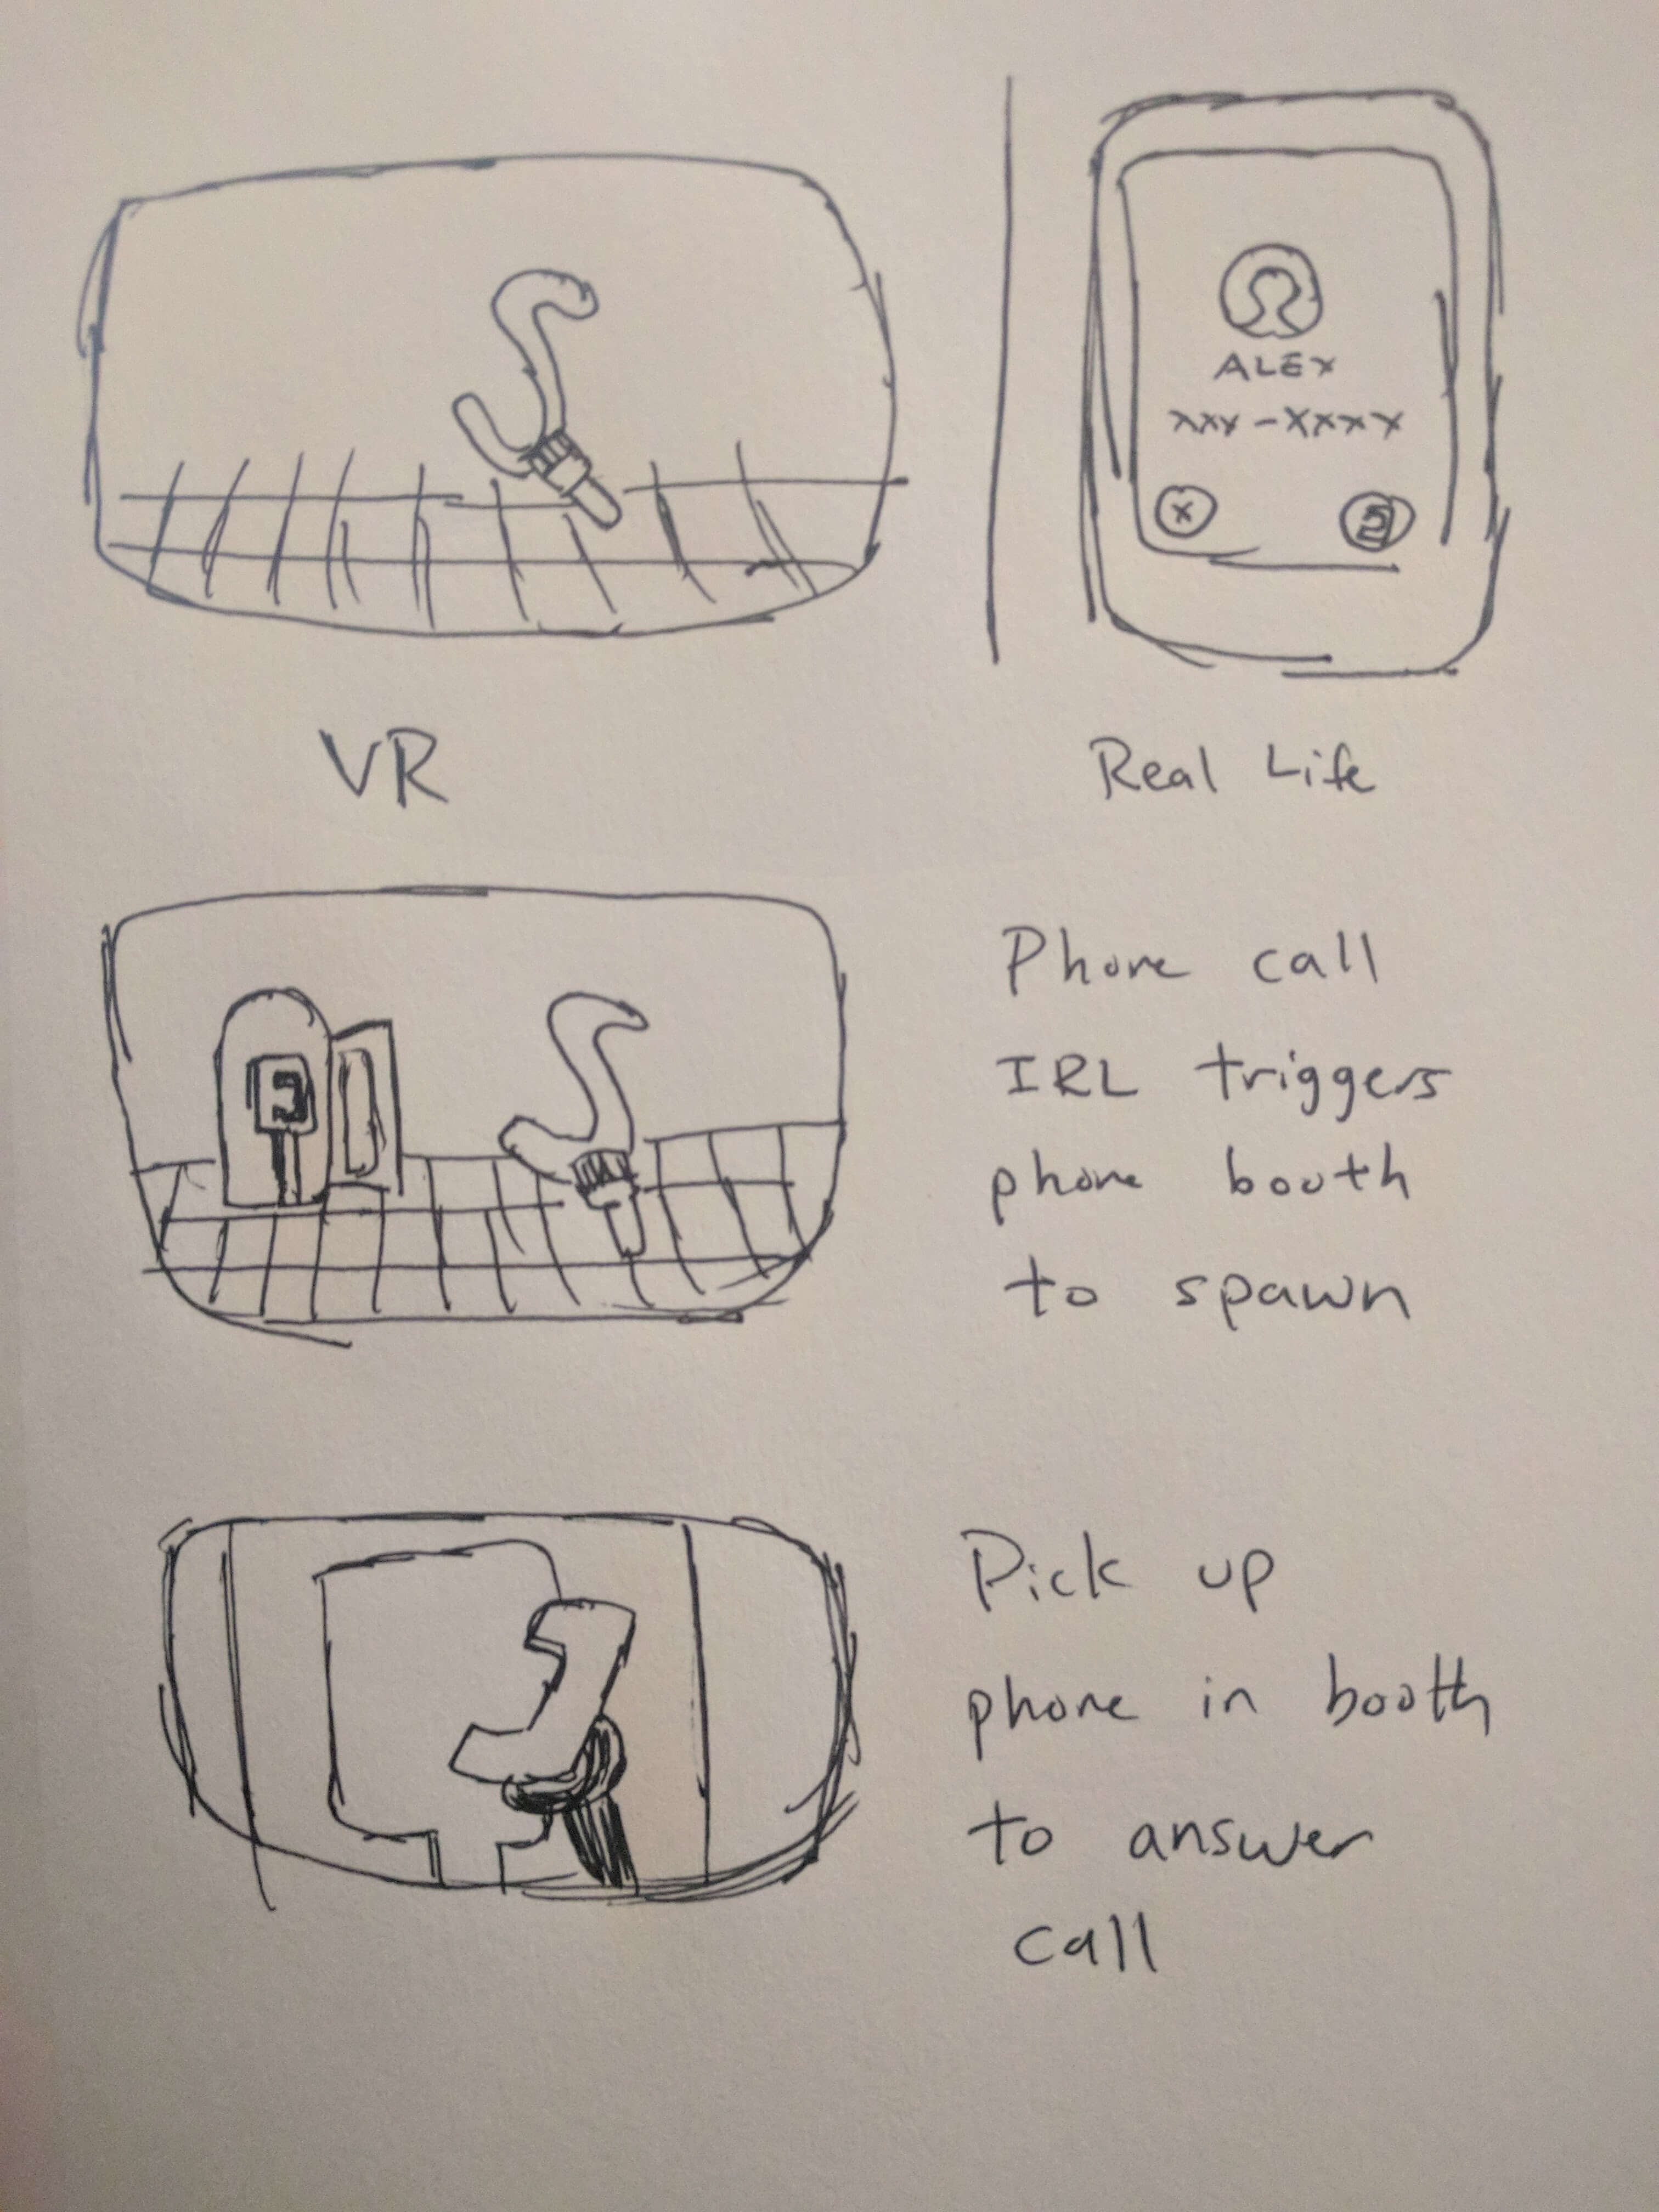 ALEX
xxx-xxxx
x
VR
Real Life
Phone call
IRL triggers
phone booth
to spawn
Pick up
phone in booth
to answer
call